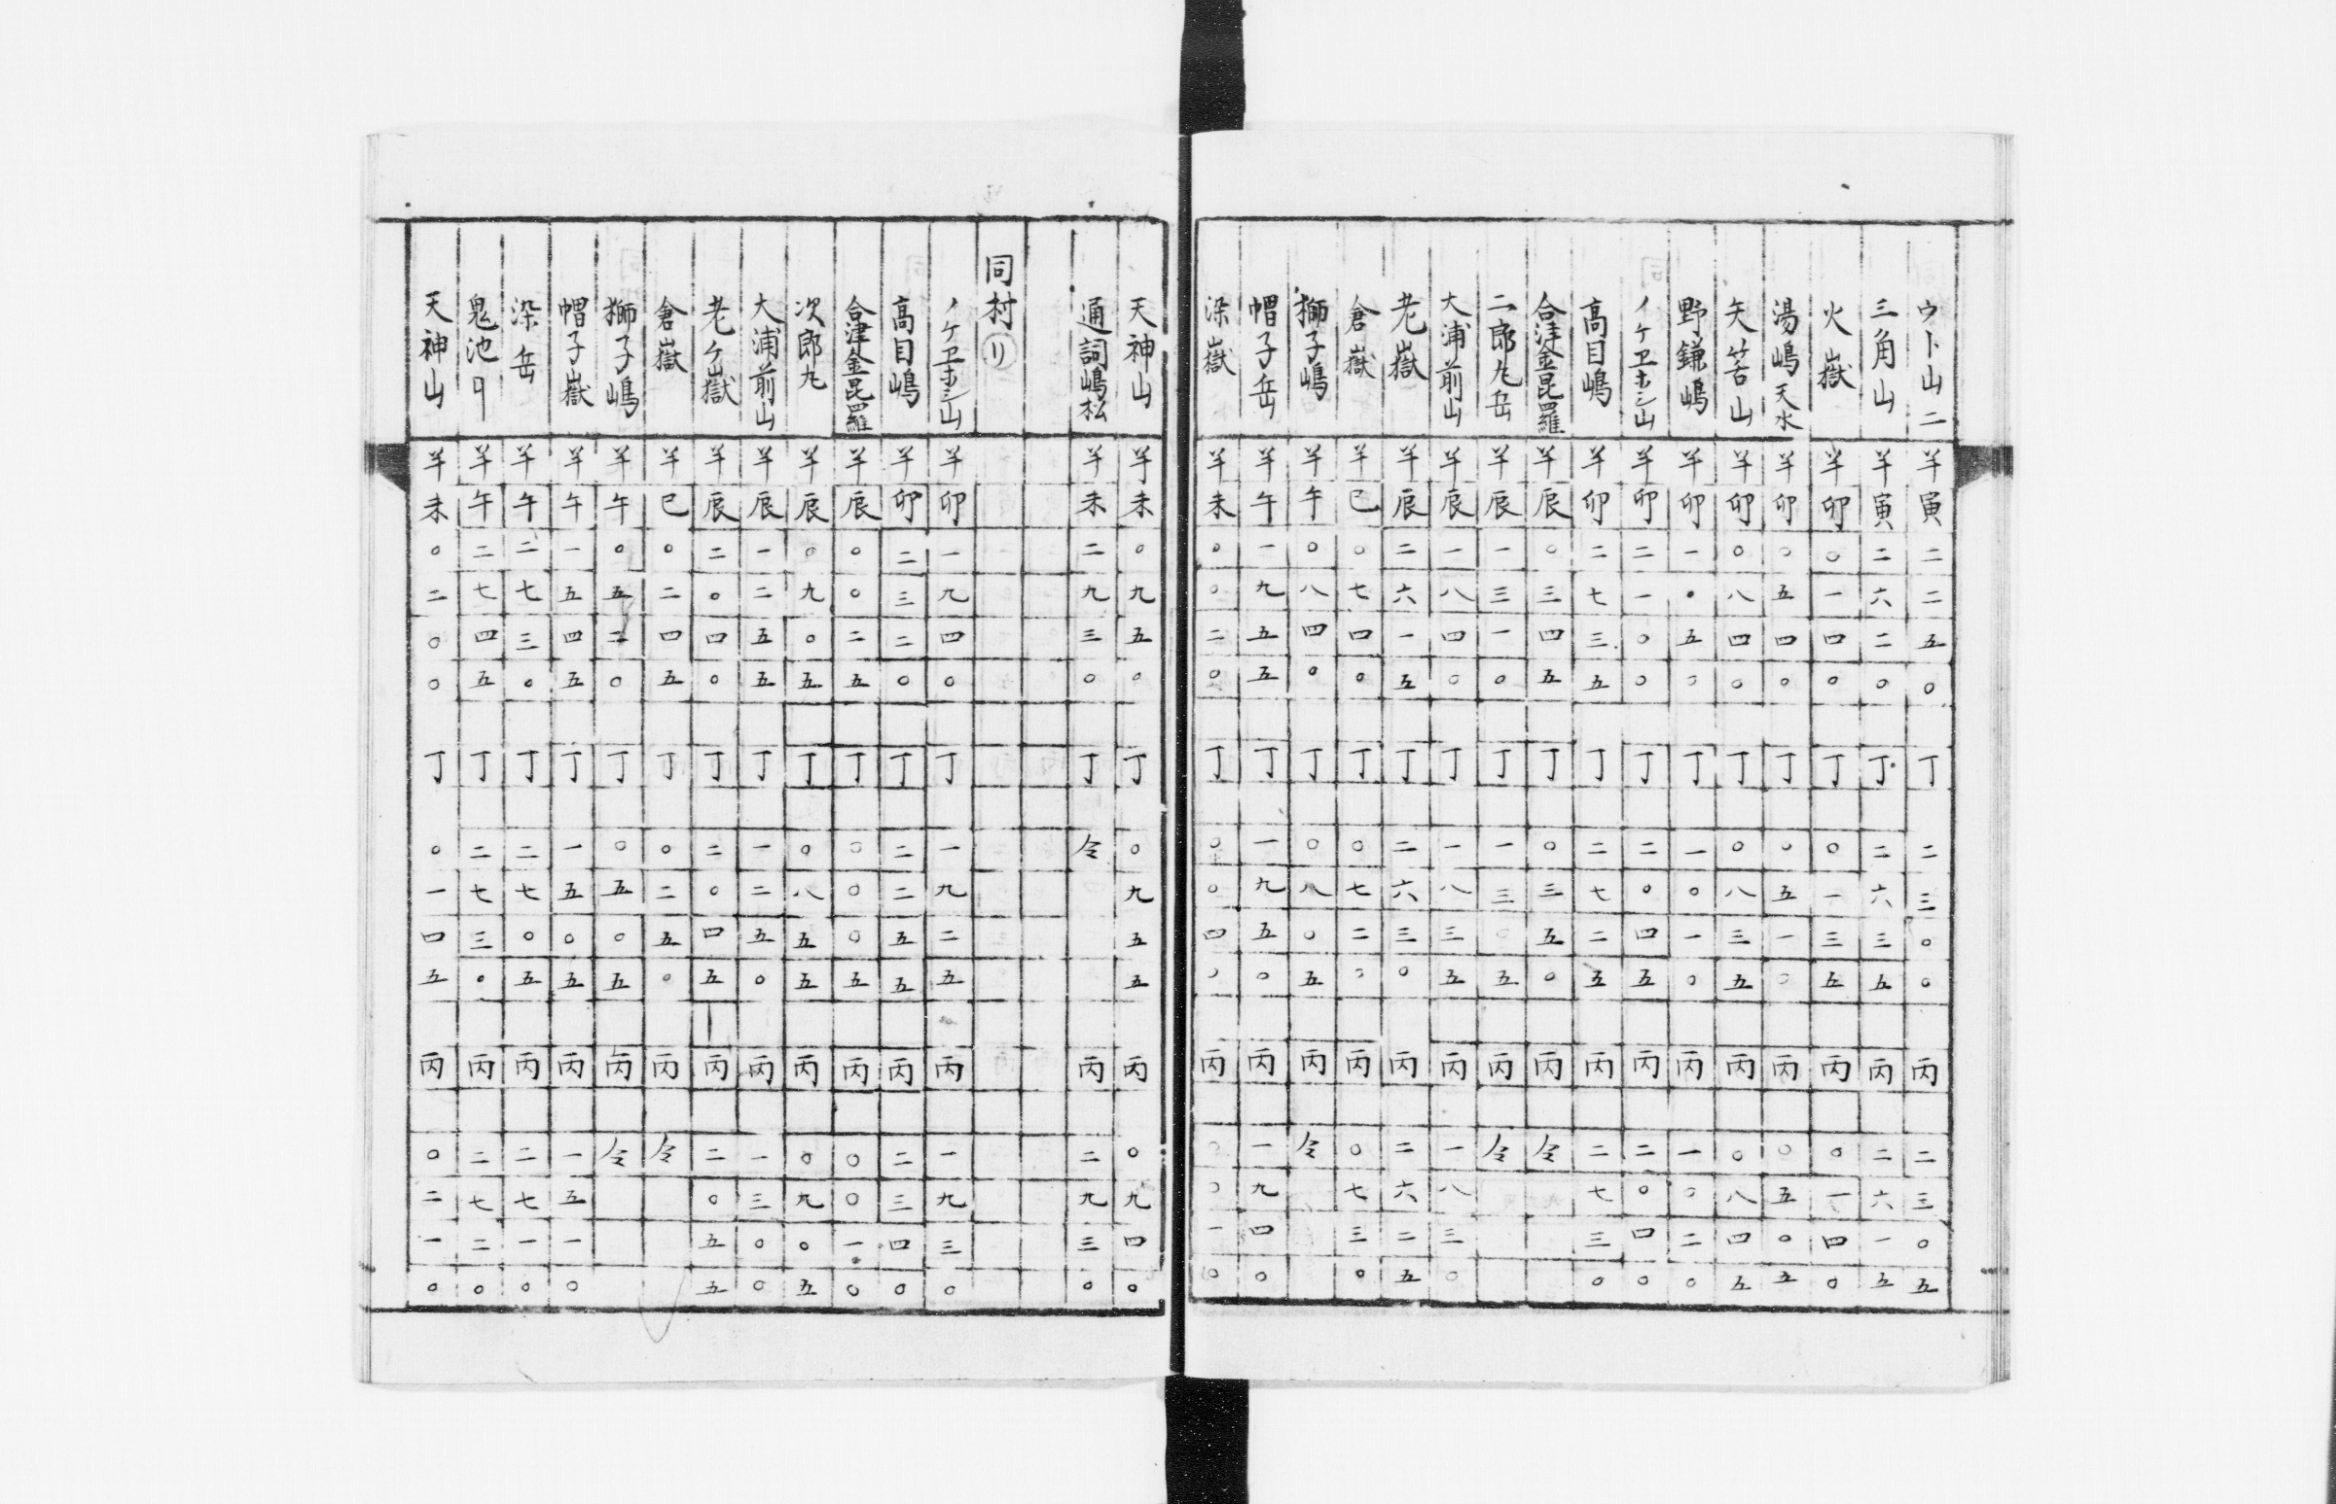 ウト山二 半寅 二二五〇 丁 二三〇〇 丙 二三〇五
三角山 半寅 二六二〇 丁 二六三五 丙 二六一五
火嶽 半卯 〇一四〇 丁 〇一三五 丙 〇一四〇
湯嶋天水 半卯 〇五四〇 丁 〇五一〇 丙 〇五〇五
矢筈山 半卯 〇八四〇 丁 〇八三五 丙 〇八四五
野鎌嶋 半卯 一〇五〇 丁 一〇一〇 丙 一〇二〇
ノケヱホシ山 半卯 二一〇〇 丁 二〇四五 丙 二〇四〇
高目嶋 半卯 二七三五 丁 二七二五 丙 二七三〇
合津金昆羅 半辰 〇三四五 丁 〇三五〇 丙 令
二郎丸岳 半辰 一三一〇 丁 一三〇五 丙 令
大浦前山 半辰 一八四〇 丁 一八三五 丙 一八三〇
老嶽 半辰 二六一五 丁 二六三〇 丙 二六二五
倉嶽 半巳 〇七四〇 丁 〇七二〇 丙 〇七三〇
獅子嶋 半午 〇八四〇 丁 〇八〇五 丙 令
帽子岳 半午 一九五五 丁 一九五〇 丙 一九四〇
染嶽 半未 〇〇二〇 丁 〇〇四〇 丙 〇〇一〇
天神山 半未 〇九五〇 丁 〇九五五 丙 〇九四〇
通詞嶋松 半未 二九三〇 丁 令 丙 二九三〇
同村リ
ノケヱホシ山 半卯 一九四〇 丁 一九二五 丙 一九三〇
高目嶋 半卯 二三二〇 丁 二二五五 丙 二三四〇
合津金昆羅 半辰 〇〇二五 丁 〇〇〇五 丙 〇〇一〇
次郎丸 半辰 〇九〇五 丁 〇八五五 丙 〇九〇五
大浦前山 半辰 一二五五 丁 一二五〇 丙 一三〇〇
老ケ嶽 半辰 二〇四〇 丁 二〇四五 丙 二〇五五
倉嶽 半巳 〇二四五 丁 〇二五〇 丙 令
獅子嶋 半午 〇五二〇 丁 〇五〇五 丙 令
帽子嶽 半午 一五四五 丁 一五〇五 丙 一五一〇
染岳 半午 二七三〇 丁 二七〇五 丙 二七一〇
鬼池 半午 二七四五 丁 二七三〇 丙 二七二〇
天神山 半未 〇二〇〇 丁 〇一四五 丙 〇二一〇